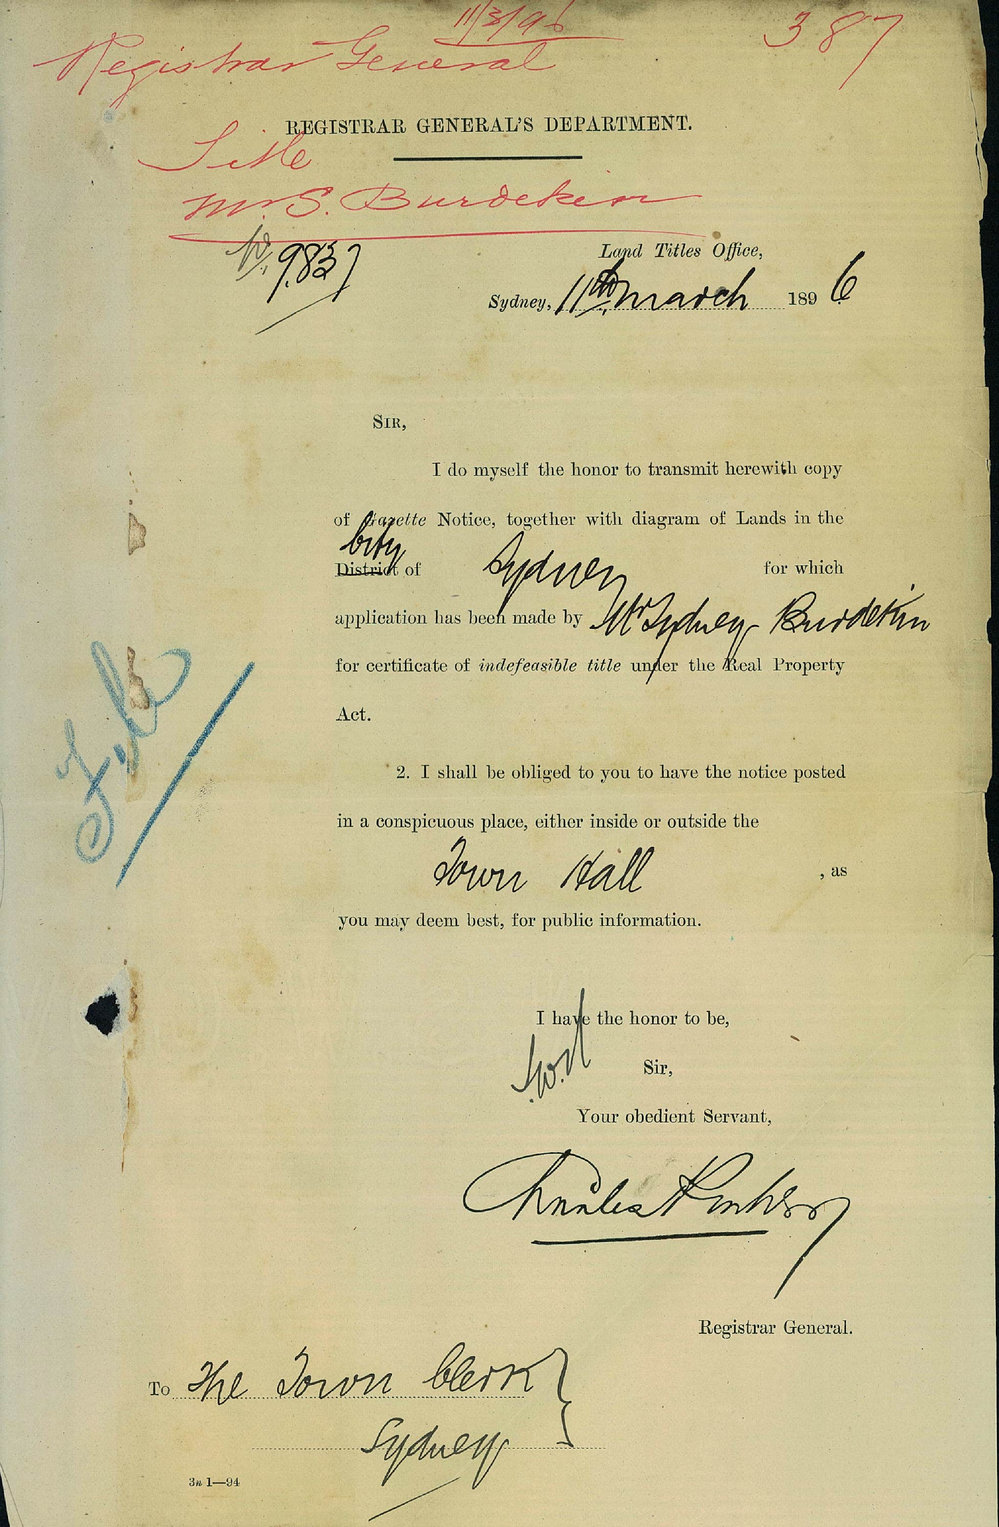 11/3/96
387
Registrar General
REGISTRAR GENERAL'S DEPARTMENT.
Title
Mr S. Burdekin
No. 9.837
Land Titles Office,
Sydney, 11th March 1896
SIR,
I do myself the honor to transmit herewith copy
of Gazette Notice, together with diagram of Lands in the
City
District of Sydney for which
application has been made by Mr Sydney Burdekin
for certificate of indefeasible title under the Real Property
Act.
2. I shall be obliged to you to have the notice posted
in a conspicuous place, either inside or outside the
Town Hall , as
you may deem best, for public information.
File
I have the honor to be,
Sir,
Your obedient Servant,
Charles
Registrar General.
To The Town Clerk
Sydney
3n 1—94